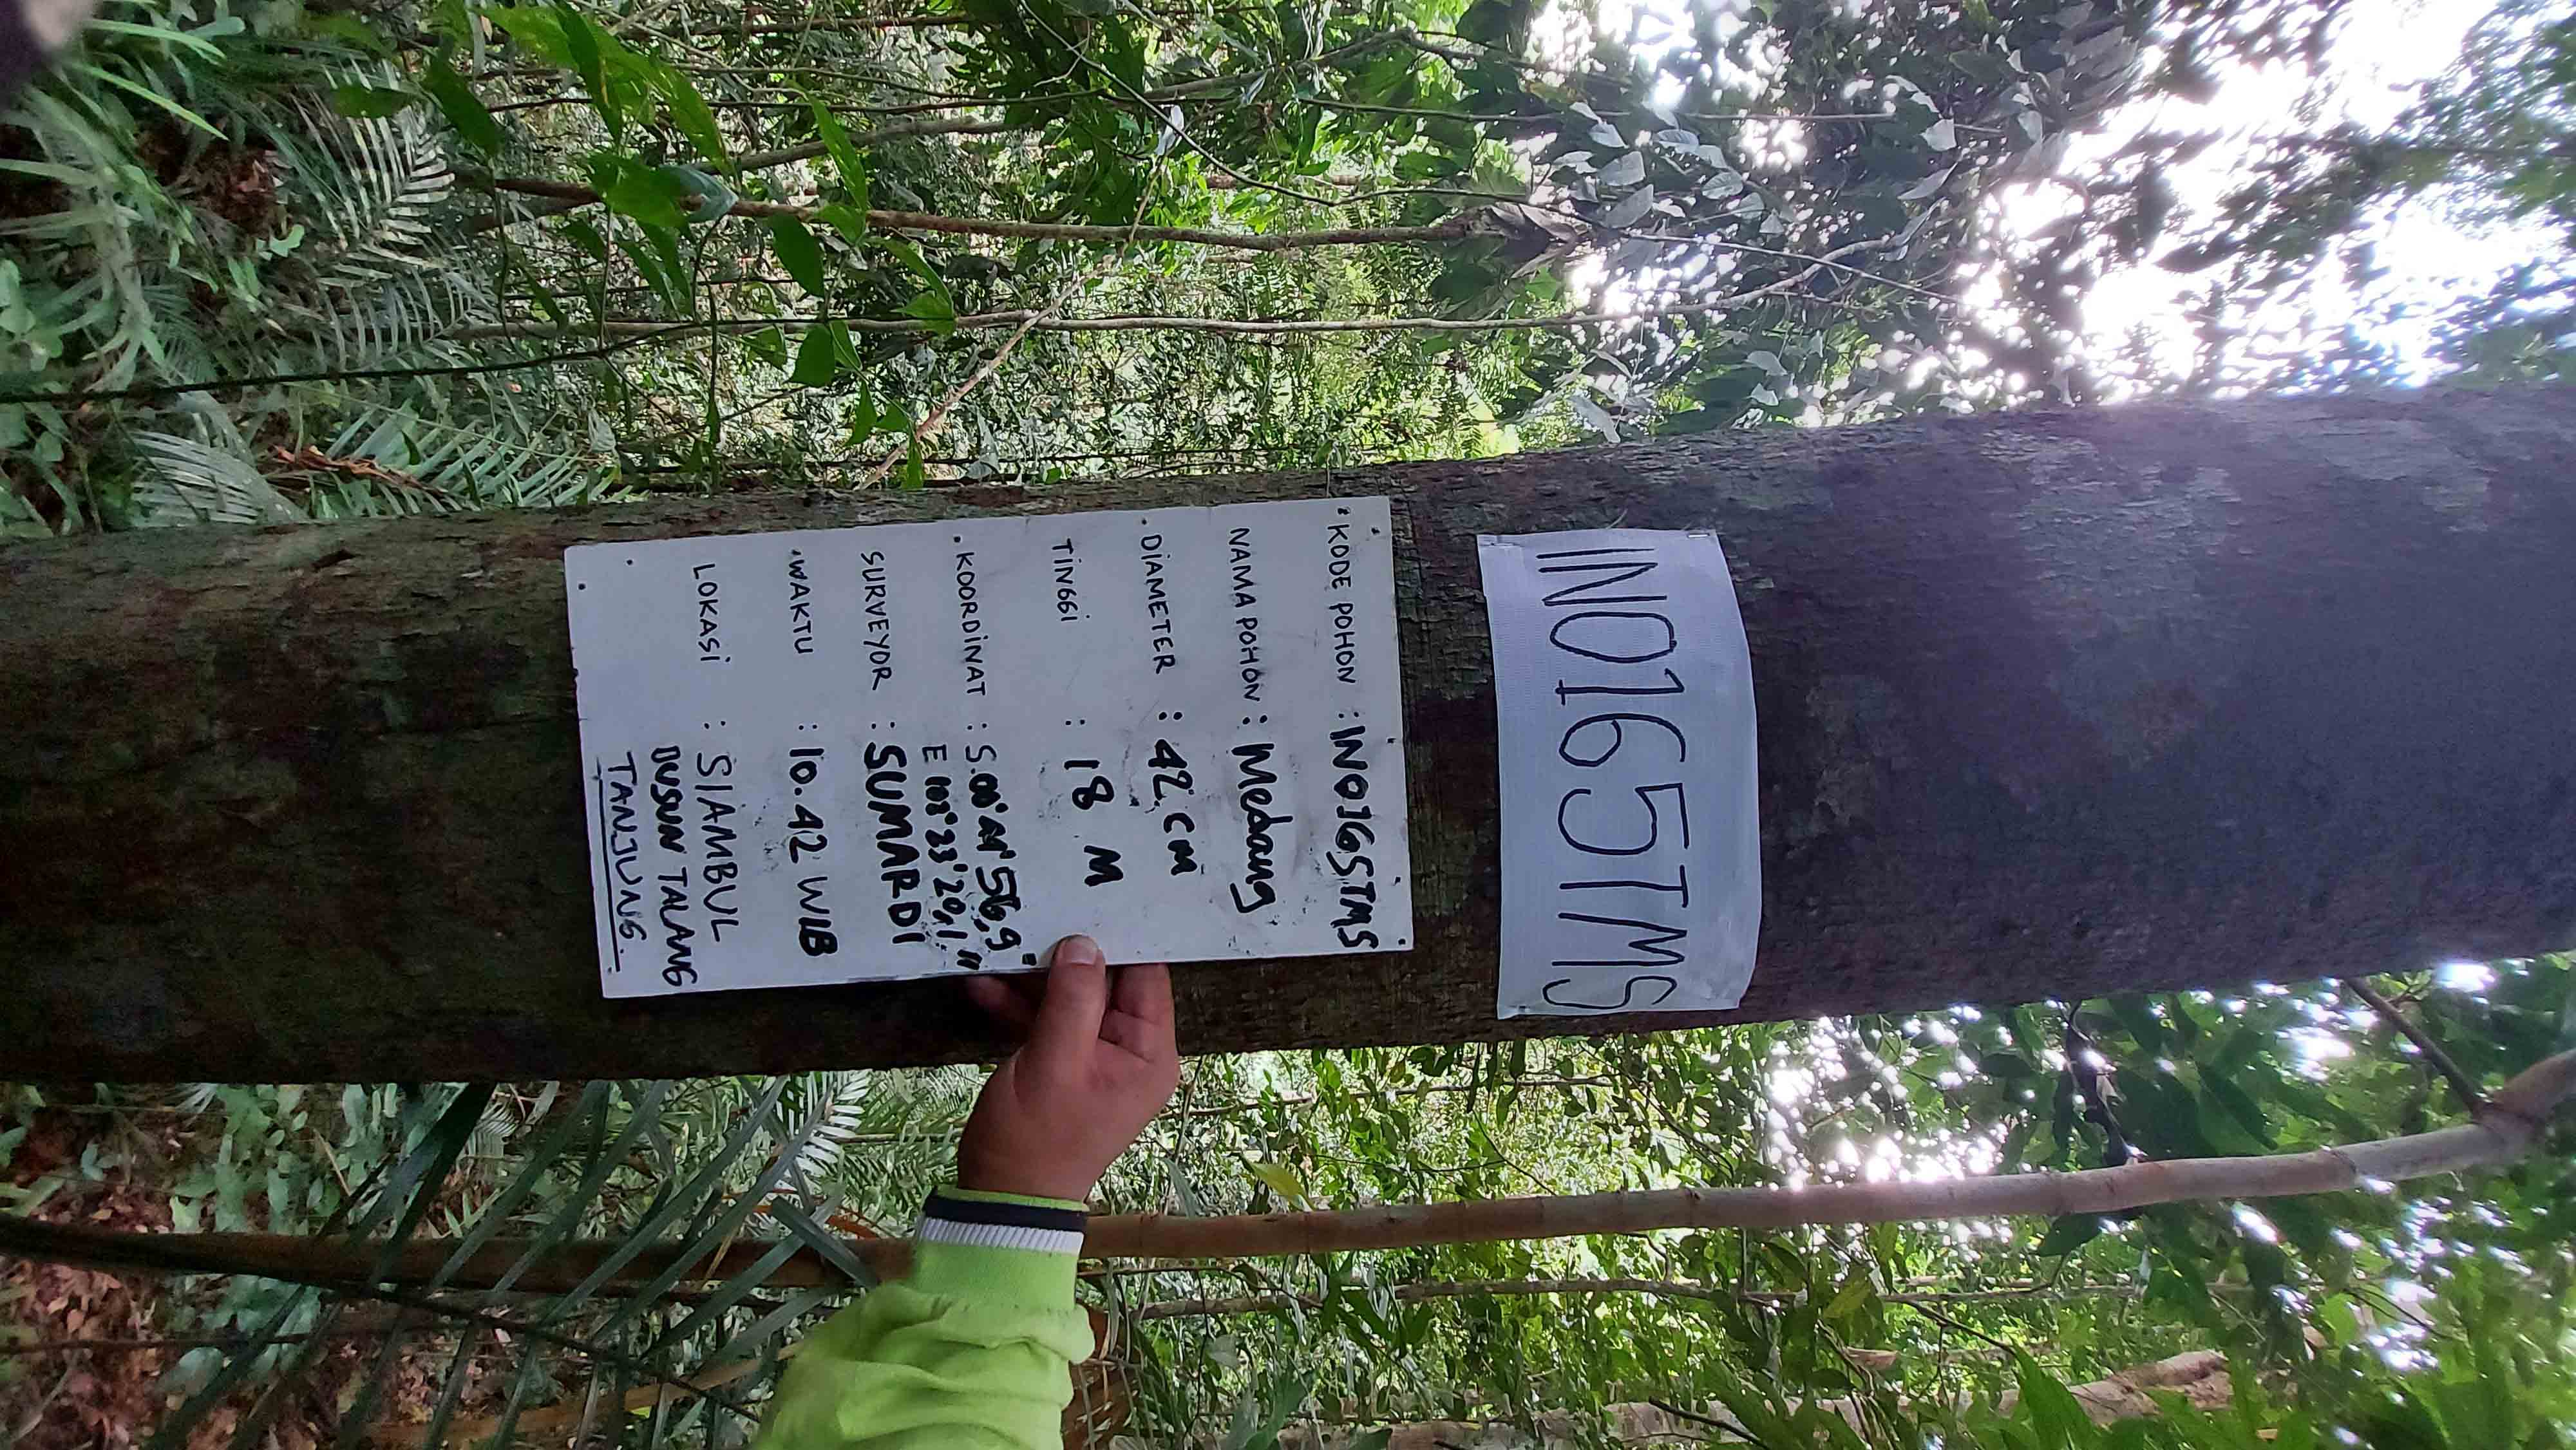 INO165TMS
KODE POHON : INO165TMS
NAMA POHON : Medang
DIAMETER : 42 CM
TINGGI : 18 M
KOORDINAT : S.00°44'56,9"
E 102°23'20,1"
SURVEYOR : SUMARDI
WAKTU : 10.42 WIB
LOKASI : SIAMBUL
DUSUN TALANG
TANJUNG.